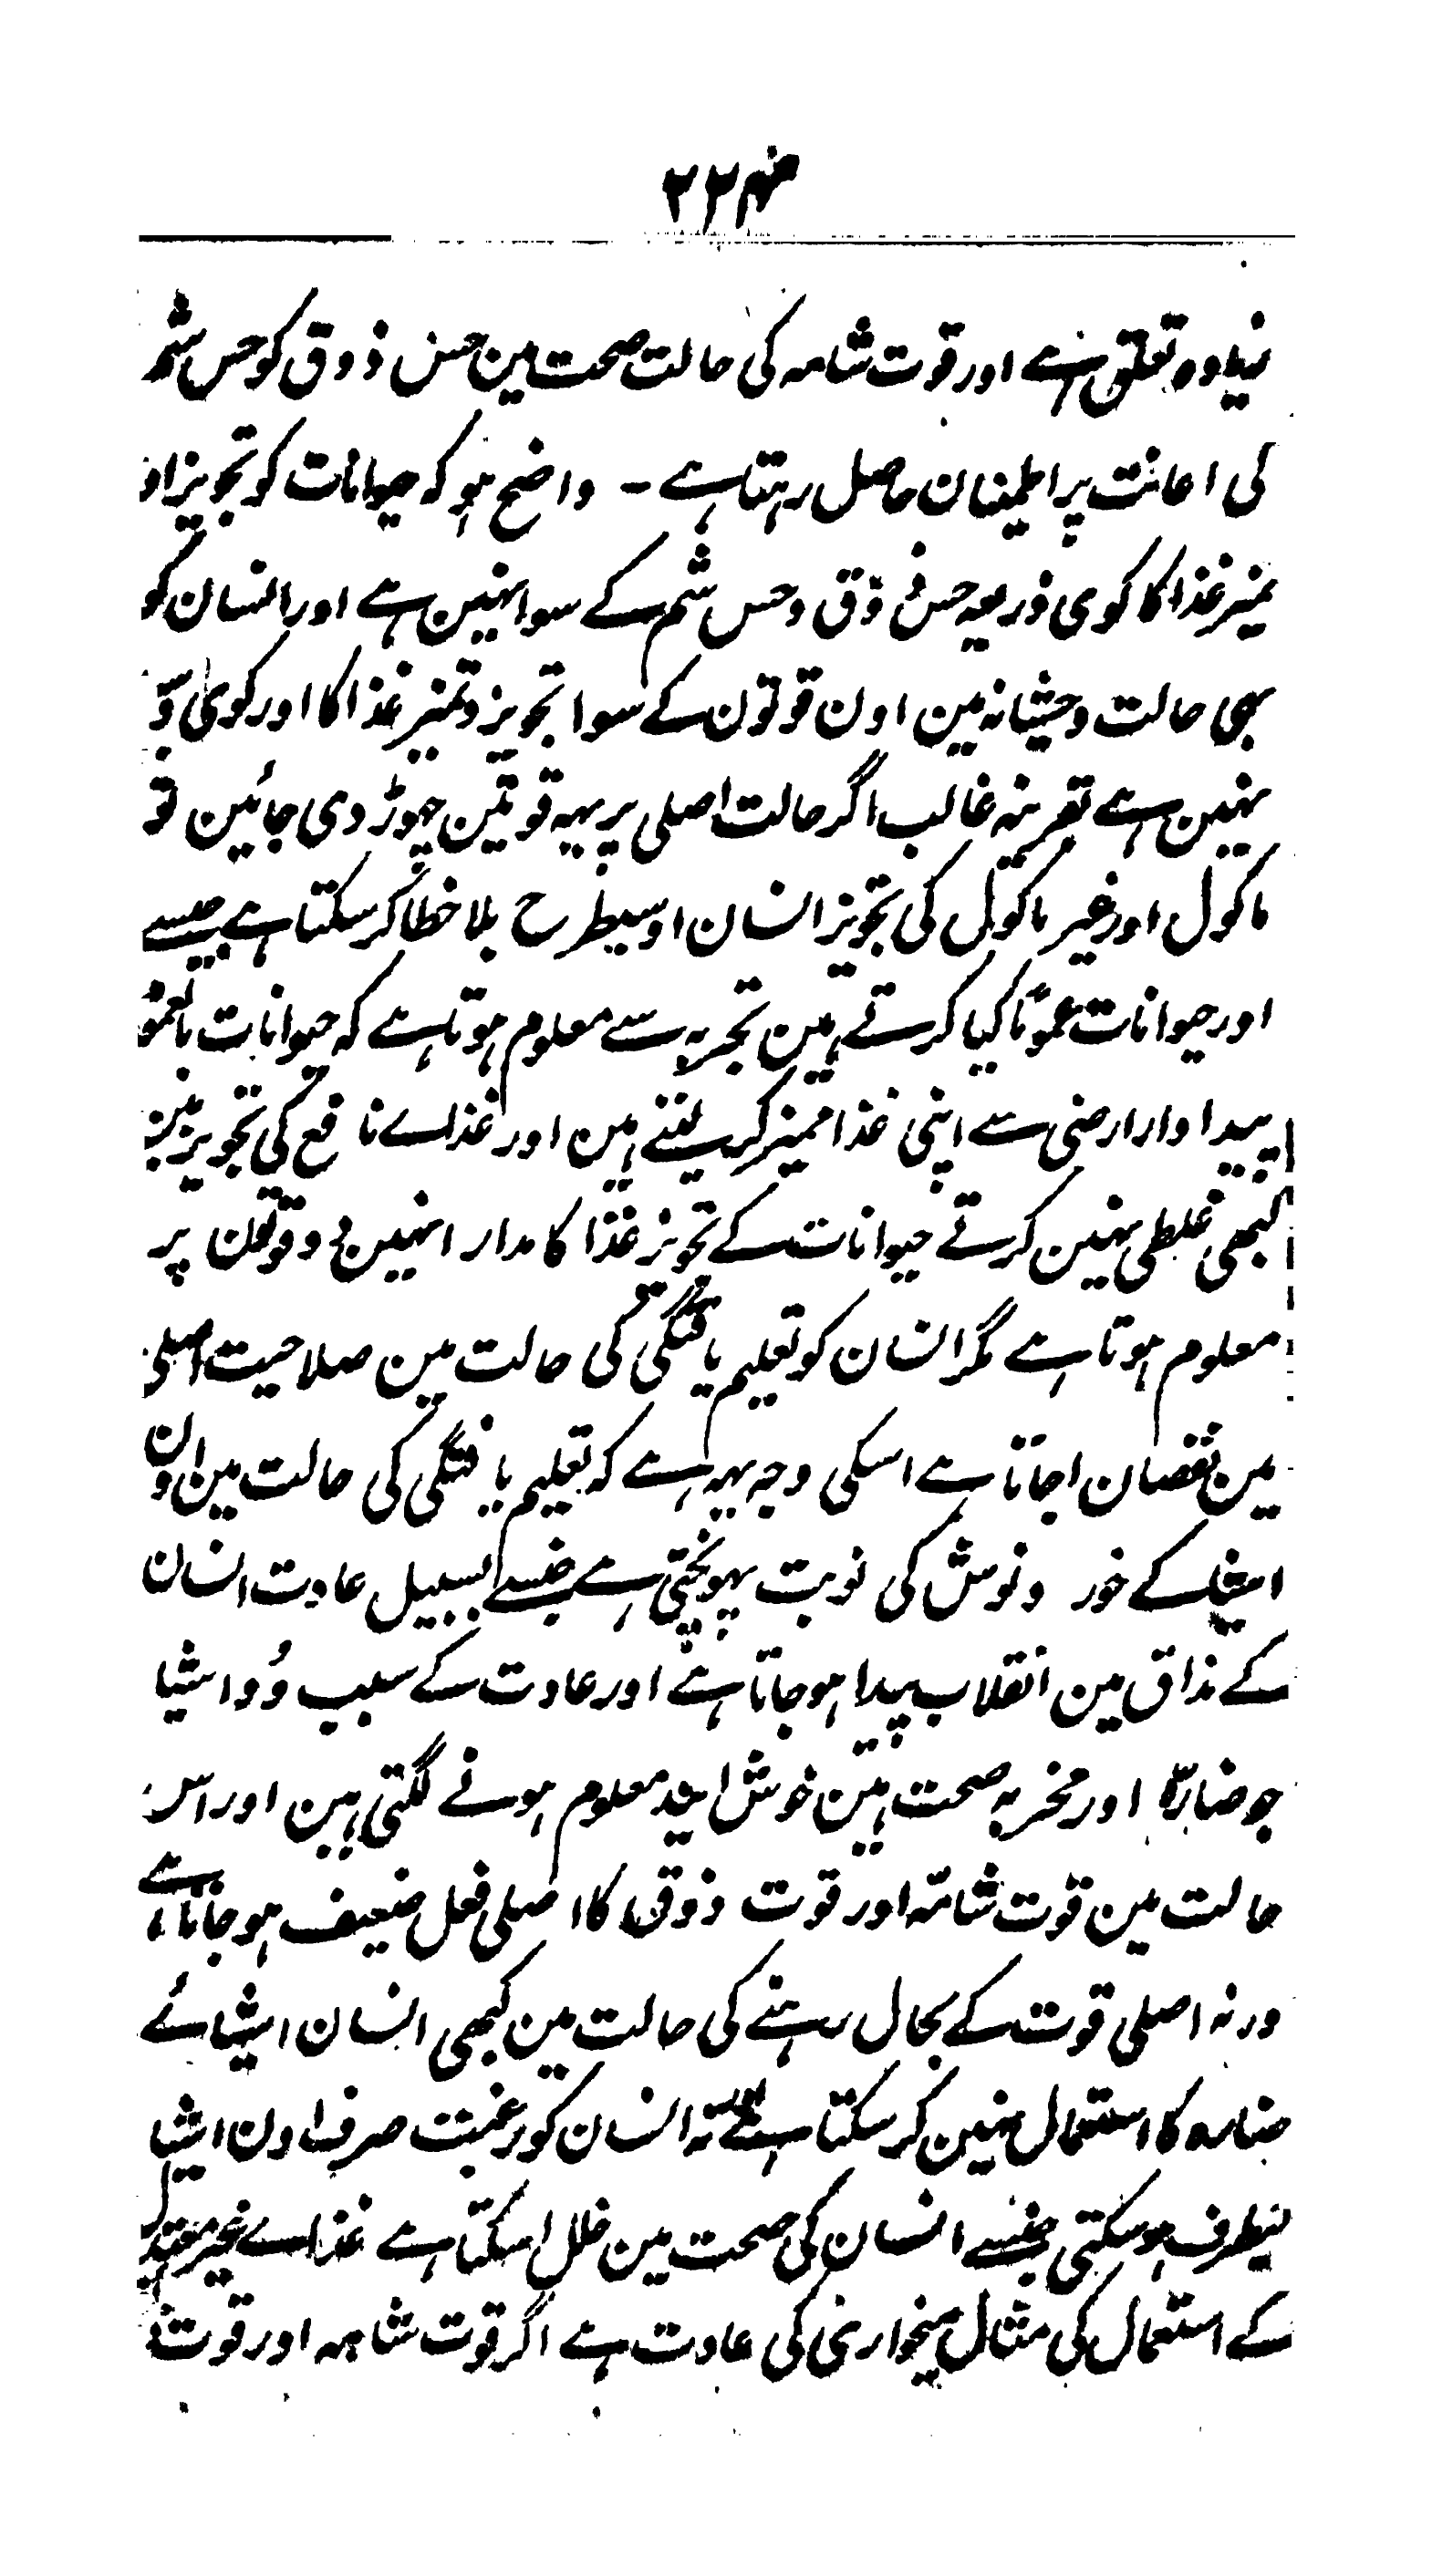 نمبر ۲۲
زیادہ تعلق ہے اور قوت شامہ کی حالت صحت مین حس ذوق کو حس شم
کی اعانت پر اطمینان حاصل رہتا ہے - واضح ہو کہ حیوانات کو تجویز او
تمیز غذا کا کوی ذریعہ حس ذوق و حس شم کے سوا نہین ہے اور انسان کو
بھی حالت وحشیانہ مین اون قوتون کے سوا تجویز و تمیز غذا کا اور کوی
نہین ہے بقرینہ غالب اگر حالت اصلی پر یہہ قوتین چھوڑ دی جائین تو
ماکول اور غیر ماکول کی تجویز انسان اوسیطرح بلا خطا کر سکتا ہے جیسے
اور حیوانات عموماً کیا کرتے ہین تجربہ سے معلوم ہوتا ہے کہ حیوانات بالعموم
پیداوار ارضی سے اپنی غذا ممیز کر لیتے ہین اور غذاے نافع کی تجویز مین
کبھی غلطی نہین کرتے حیوانات کے تجویز غذا کا مدار انہین دو قوتون پر
معلوم ہوتا ہے مگر انسان کو تعلیم یافتگی کی حالت مین صلاحیت اصلی
مین نقصان اجاتا ہے اسکی وجہ یہہ ہے کہ تعلیم یافتگی کی حالت مین اون
اشیا کے خور و نوش کی نوبت پہونچتی ہے جنسے بسبیل عادت انسان
کے مذاق مین انقلاب پیدا ہو جاتا ہے اور عادت کے سبب وہ اشیا
جو ضارّہ اور مخرب صحت ہین خوش ایند معلوم ہونے لگتی ہین اور اس
حالت مین قوت شامّہ اور قوت ذوق کا اصلی فعل ضعیف ہو جاتا ہے
ورنہ اصلی قوت کے بحال رہنے کی حالت مین کبھی انسان اشیائے
ضارہ کا استعمال نہین کر سکتا ہے نہ انسان کو رغبت صرف اون اشیا
کیطرف ہو سکتی جنسے انسان کی صحت مین خلل اسکتا ہے غذاے غیر مفید
کے استعمال کی مثال میخواری کی عادت ہے اگر قوت شامہ اور قوت